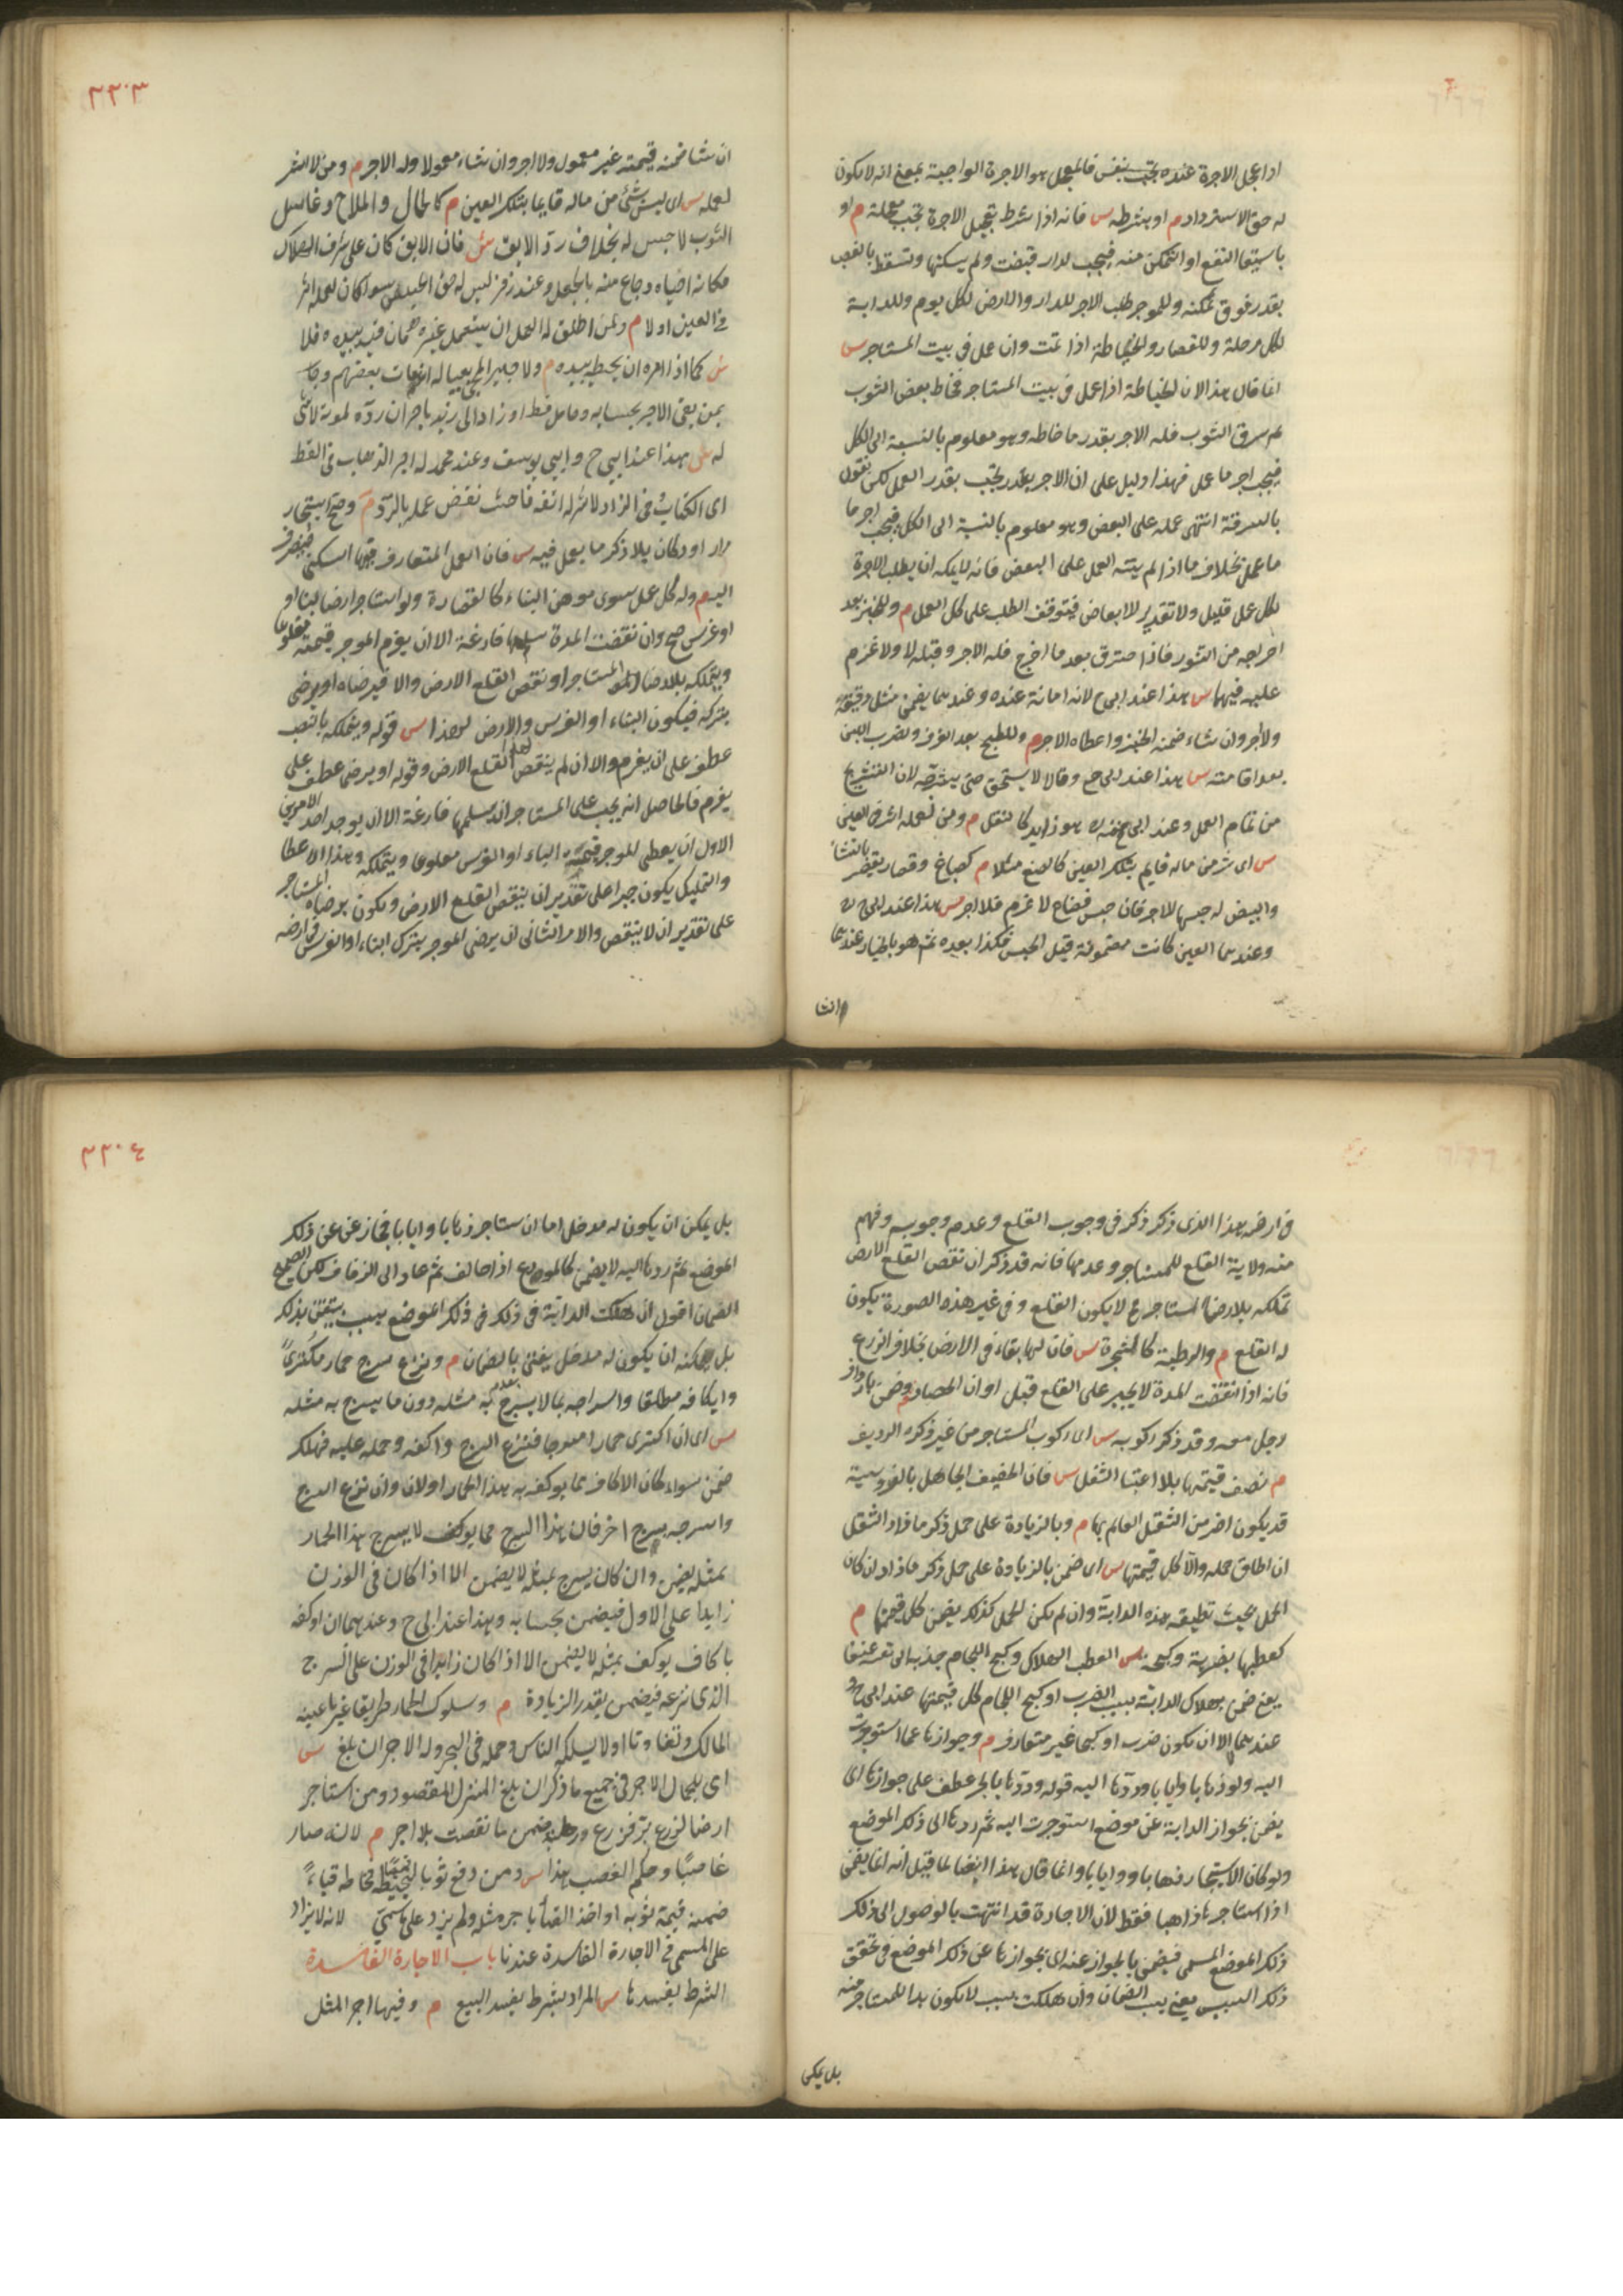 اذا عجل الاجرة عنده يجب بنفس فالمعجل هو الاجرة الواجبة بمعنى انه لا يكون
له حق الاسترداد م او بشرطه س فانه اذا شرط تعجيل الاجرة تجب معجلة م او
باستيفا النفع او التمكن منه فيجب لدار قبضت ولم يسكنها وتسقط بالغصب
بقدر فوت تمكنه وللموجر طلب الاجر للدار والارض لكل يوم وللدابة
لكل مرحلة وللقصار والخياطة اذا تمت وان عمل فى بيت المستاجر س
انما قال هذا لان الخياطة اذا عمل فى بيت المستاجر فخاط بعض الثوب
ثم سرق الثوب فله الاجر بقدر ما خاطه وهو معلوم بالنسبة الى الكل
فيجب اجر ما عمل فهذا دليل على ان الاجر يجب بقدر العمل لكن نقول
بالسرقة انتهى عمله على البعض وهو معلوم بالنسبة الى الكل فيجب اجر ما
ما عمل بخلاف ما اذا لم ينته العمل على البعض فانه لا يمكنه ان يطلب الاجرة
لكل عمل قليل ولا تقدير للابعاض فيتوقف الطلب على كل العمل م وللخبز بعد
اخراجه من التنور فاذا احترق بعد ما اخرج فله الاجر وقبله لا ولا غرم
عليه فيهما س هذا عند ابى ح لانه امانة عنده وعندهما يضمن مثل دقيقه
ولا اجر وان شاء ضمنه الخبز واعطاه الاجر م وللطبخ بعد الغرف ولضرب اللبن
بعد اقامته س هذا عند ابى ح وقالا لا يستحق حتى يشرجه لان التشريج
من تمام العمل وعند ابى حنيفه ره هو زايد كالنقل م ومن لعمله اثر فى العين
س اى شئ من ماله قايم بتلك العين كالصبغ مثلا م كصباغ وقصار يقصر بالنشا
والبيض له حبسها للاجر فان حبس فضاع لا غرم فلا اجر س هذا عند ابى ح ره
وعندهما العين كانت مضمونة قبل الحبس فكذا بعده ثم هو بالخيار عندهما
ان شا
٣٣٠٣
ان شا ضمنه قيمته غير معمول ولا اجر وان شاء معمولا وله الاجر م ومن لا اثر
لعمله س اى ليس شئ من ماله قايما بتلك العين م كالحمال والملاح وغاسل
الثوب لا حبس له بخلاف رد الابق س فان الابق كان على شرف الهلاك
فكانه احياه وباع منه بالجعل وعند زفر ليس له حق الحبس سوا كان لعمله اثر
فى العين او لا م ولمن اطلق له العمل ان يستعمل غيره فان قيد بيده فلا
س كما اذا امره ان يخيط بيده م ولاجير المجئ بعياله ان مات بعضهم وجاء
بمن بقى الاجر بحسابه وحامل قط او زاد الى زيد باجر ان رده لموته لا شئ
له س هذا عند ابى ح وابى يوسف وعند محمد له اجر الذهاب فى القط
اى الكتاب وفى الزاد لا شئ له اتفاقا حيث نقض عمله بالرد م وصح استيجار
دار او دكان بلا ذكر ما يعمل فيه س فان العمل المتعارف فيها السكنى فينصرف
اليه م وله كل عمل سوى موهن البناء كالقصارة ولو استاجر ارضا لبناء او
او غرس صح وان نقضت المدة سلمها فارغة الا ان يغرم الموجر قيمته مقلوعا
ويتملكه بلا رضا المستاجر ان نقص القلع الارض والا فبرضاه او يرضى
بتركه فيكون البناء او الغرس والارض لهذا س قوله ويتملكه بالنصب
عطف على ان يغرم والا ان لم ينقص القلع الارض وقوله او يرضى عطف على
يغرم فالحاصل انه يجب على المستاجر ان يسلمها فارغة الا ان يوجد احد الامرين
الاول ان يعطى الموجر قيمة البناء او الغرس مقلوعا ويتملكه وهذا الاعطا
والتمليك يكون جبرا على تقدير ان ينقص القلع الارض ويكون برضاه المستاجر
على تقدير ان لا ينقص والامر الثانى ان يرضى الموجر بترك البناء او الغرس فى ارضه
فى ارضه هذا الذى ذكر ذكر فى وجوب القلع وعدم وجوبه وفهم
منه ولاية القلع للمستاجر وعدمها فانه قد ذكر ان نقص القلع الارض
تملكه بلا رضا المستاجر فح لا يكون القلع وفى غير هذه الصورة يكون
له القلع م والرطبة كالشجرة س فان لها بقاء فى الارض بخلاف الزرع
فانه اذا انقضت المدة لا يجبر على القلع قبل اوان الحصاد م وضمن بارداف
رجل معه وقد ذكر ركوبه س اى ركوب المستاجر من غير ذكر الرديف
م نصف قيمتها بلا اعتبار الثقل س فان الخفيف الجاهل بالفروسية
قد يكون اضر من الثقيل العالم بها م وبالزيادة على حمل ذكر ما زاد الثقل
ان اطاق حمله والا كل قيمتها س اى ضمن بالزيادة على حمل ذكر ما زاد ان كان
الحمل بحيث تطيقه هذه الدابة وان لم يكن الحمل كذلك يضمن كل قيمتها م
كعطبها بضربه وكبحه س العطب الهلاك وكبح اللجام جذبه الى نفسه عنيفا
يعنى ضمن بهلاك الدابة بسبب الضرب او كبح اللجام كل قيمتها عند ابى ح و
عندهما الا ان يكون ضرب او كبحا غير متعارف م وجوازها عما استوجرت
اليه ولو ذهابا وايابا وردها اليه قوله وردها بالجر عطف على جوازها اى
يضمن بجواز الدابة عن موضع استوجرت اليه ثم ردها الى ذلك الموضع
ولو كان الاستيجار ذهابا وايابا وانما قال هذا ايضا لما قيل انه انما يضمن
اذا استاجرها ذاهبا فقط لان الاجارة قد انتهت بالوصول الى ذلك
ذلك الموضع المسمى فيضمن بالجواز عنه اى بجوازها عن ذلك الموضع وتحقق
ذلك السبب يعنى سبب الضمان وان هلكت بسبب لا يكون بدا للمستاجر منه
بل يمكن
٣٣٠٤
بل يمكن ان يكون له مدخل اما ان استاجر ذهابا وايابا فجاز عن ذلك
الموضع ثم ردها اليه لا يضمن كالمودع اذا خالف ثم عاد الى الوفاق لكن الصحيح
الضمان اقول ان هلكت الدابة فى ذلك فى ذلك الموضع بسبب يتيقن بذلك
بل يمكنه ان يكون له مدخل يفتى بالضمان م ونزع سرج حمار مكترى
وايكافه مطلقا واسراجه بما لا يسرج به مثله دون ما يسرج به مثله
س اى ان اكترى حمارا مسرجا فنزع السرج واكفه وحمله عليه فهلك
ضمن سواء كان الاكاف مما يوكف به هذا الحمار او لا وان نزع السرج
واسرجه بسرج اخر فان هذا السرج مما لا يسرج هذا الحمار
بمثله يضمن وان كان يسرج بمثله لا يضمن الا اذا كان فى الوزن
زايدا على الاول فيضمن بحسابه وهذا عند ابى ح وعندهما ان اوكفه
باكاف يوكف بمثله لا يضمن الا اذا كان زايدا فى الوزن على السرج
الذى نزعه فيضمن بقدر الزيادة م وسلوك الحمار طريقا غير ما عينه
المالك وتفاوتا او لا يسلكه الناس وحمله فى البحر وله الاجر ان بلغ س
اى للحمال الاجر فى جميع ما ذكر ان بلغ المنزل المقصود ومن استاجر
ارضا لزرع بر فزرع رطبة ضمن ما نقصت بلا اجر م لانه صار
غاصبا وحكم الغصب هذا س ومن دفع ثوبا ليخيطه قميصا فخاطه قباء
ضمن قيمة ثوبه او اخذ القبا باجر مثله ولم يزد على ما سمى لانه لا يزاد
على المسمى فى الاجارة الفاسدة عندنا باب الاجارة الفاسدة
الشرط يفسدها س المراد بشرط يفسد البيع م وفيها اجر المثل